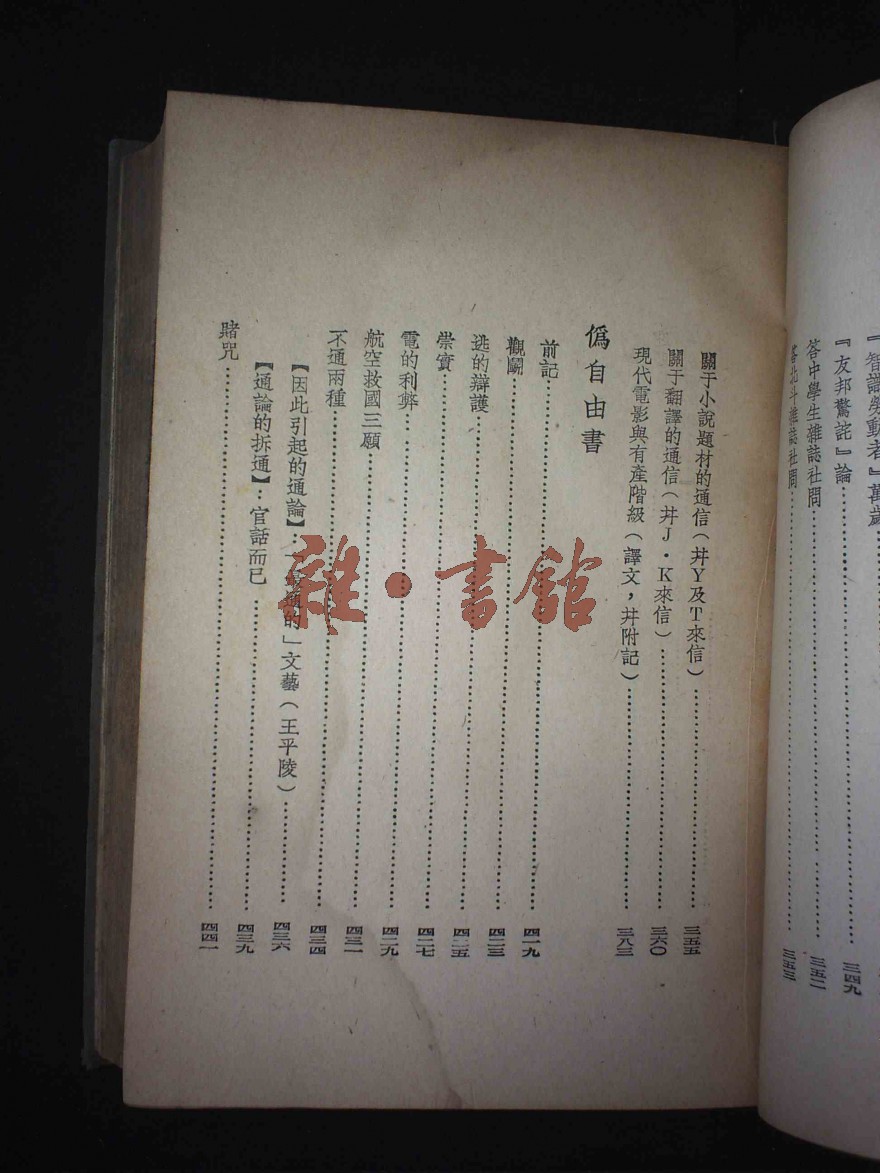 『智識勞動者』萬歲
『友邦驚詫』論……三四九
答中學生雜誌社問……三五二
答北斗雜誌社問……三五三
關于小說題材的通信(并Y及T來信)……三五五
關于翻譯的通信(并J・K來信)……三六〇
現代電影與有產階級(譯文,并附記)……三八三
僞自由書
前記……四一九
觀鬭……四二三
逃的辯護……四二五
崇實……四二七
電的利弊……四二九
航空救國三願……四三一
不通兩種……四三四
【因此引起的通論】:「最通的」文藝(王平陵)……四三六
【通論的拆通】:官話而已……四三九
賭咒……四四一
雜・書館